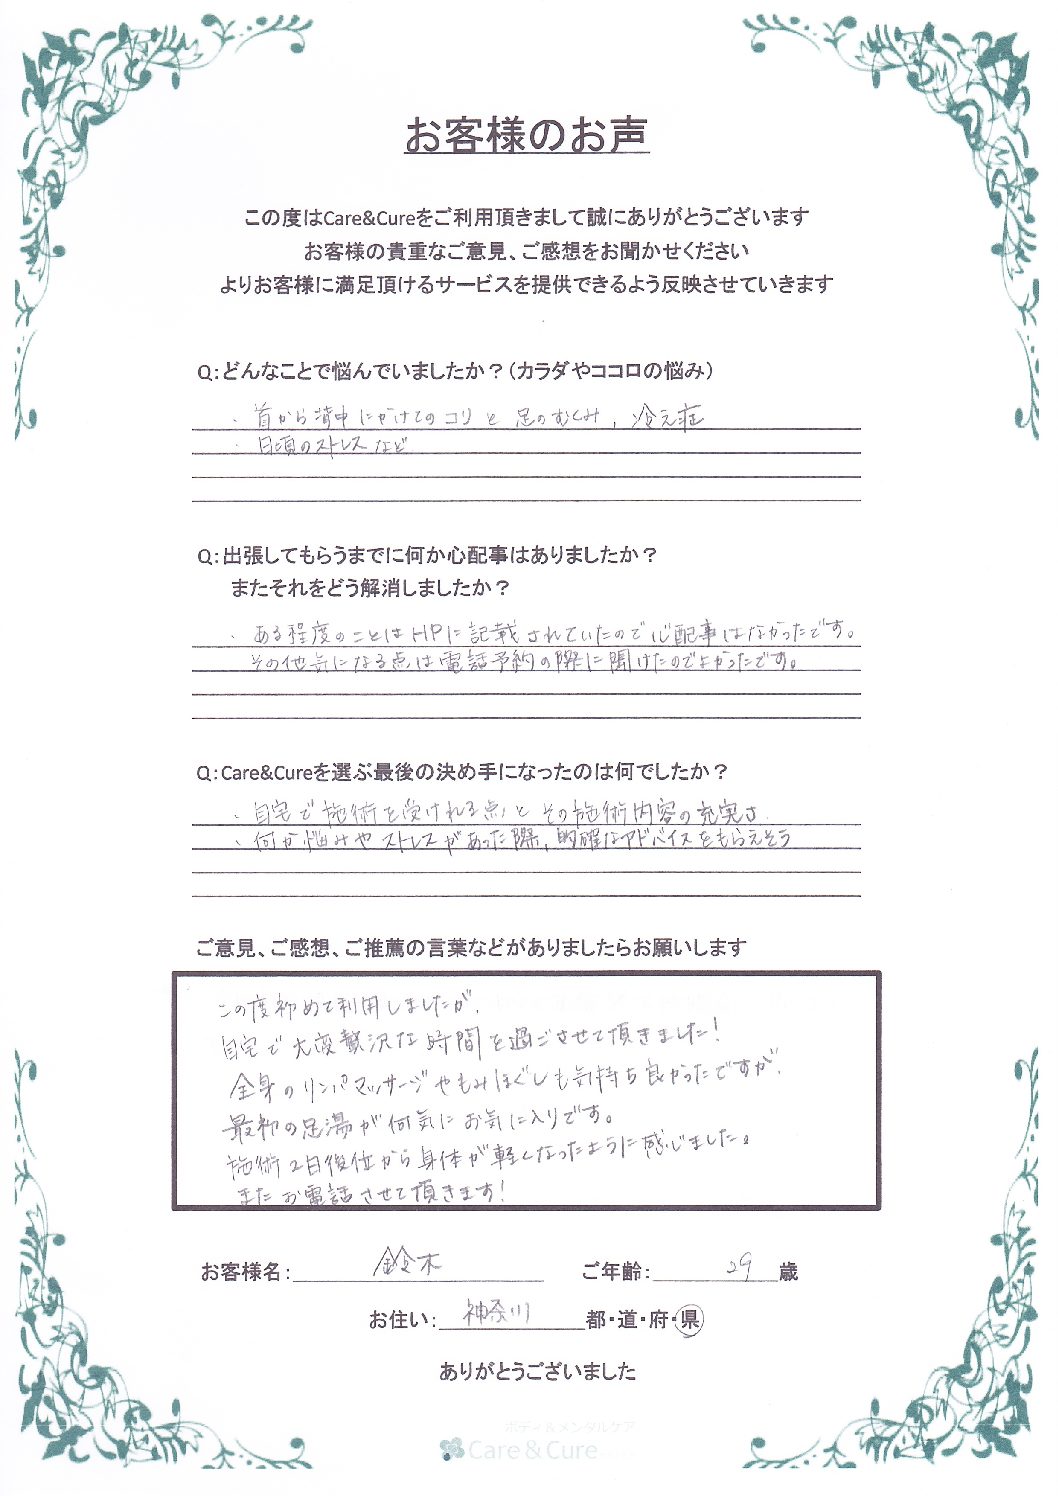 お客様のお声
この度はCare&Cureをご利用頂きまして誠にありがとうございます
お客様の貴重なご意見、ご感想をお聞かせください
よりお客様に満足頂けるサービスを提供できるよう反映させていきます
Q:どんなことで悩んでいましたか？（カラダやココロの悩み）
・首から背中にかけてのコリと足のむくみ，冷え症
・日頃のストレスなど
Q:出張してもらうまでに何か心配事はありましたか？
またそれをどう解消しましたか？
・ある程度のことはHPに記載されていたので心配事はなかったです。
その他気になる点は電話予約の際に聞けたのでよかったです。
Q:Care&Cureを選ぶ最後の決め手になったのは何でしたか？
・自宅で施術を受けれる点とその施術内容の充実さ
・何か悩みやストレスがあった際、的確なアドバイスをもらえそう
ご意見、ご感想、ご推薦の言葉などがありましたらお願いします
この度初めて利用しましたが、
自宅で大変贅沢な時間を過ごさせて頂きました！
全身のリンパマッサージやもみほぐしも気持ち良かったですが、
最初の足湯が何気にお気に入りです。
施術2日後位から身体が軽くなったように感じました。
またお電話させて頂きます！
お客様名：鈴木 ご年齢：29歳
お住い：神奈川 都・道・府・県
ありがとうございました
ボディ＆メンタルケア
Care & Cure